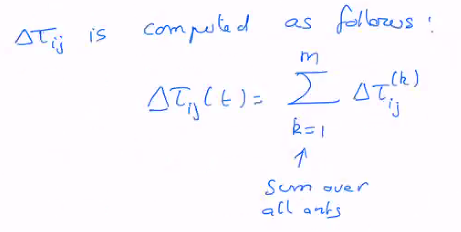 Δτij is computed as follows:
m
Δτij(t) = Σ Δτij^(k)
k=1
↑
Sum over
all ants